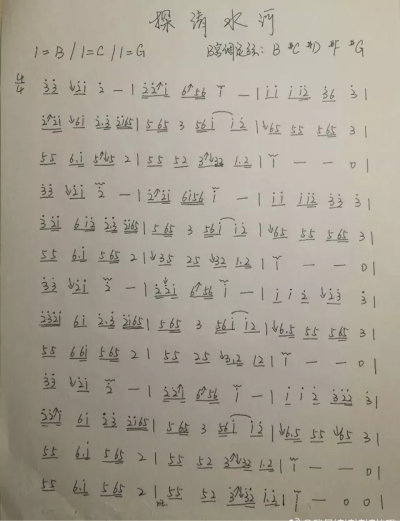 探清水河
1=B / 1=C / 1=G B宫调定弦: B #C #D #F #G
4/4 3̇3̇ ↓2̇1̇ 2̇ — | 2̇2̇↑1̇ 6↑56 1̇ — | 1̇1̇ 1̇1̇2̇ 3̇6 3̇ |
2̇↑2̇1̇ 61̇ 2̇·3̇ 2̇1̇65 | 5 65 3 561̇ 1̇2̇ | ↓65 55 565 3 |
55 6·1̇ 5↑65 2 | 55 52 3↑22 1·2 | 1̇ — — 0 |
3̇3̇ ↓2̇1̇ 2̇ — | 2̇↑2̇1̇ 6156 1̇ — | 1̇1̇ 1̇1̇2̇ 3̇3̇ 3̇ |
3̇2̇1̇ 61̇2̇ 2̇3̇ 2̇1̇65 | 565 3 561̇ 1̇2̇ | ↓65 55 565 3 |
55 6·1̇ 565 2 | ↓35 25 ↓32 1·2 | 1̇ — — 0 |
3̇3̇ ↓2̇1̇ 2̇ — | 2̇2̇1̇ 6↑56 1̇ — | 1̇ 1̇ 2̇ ↓2̇3̇ 3̇ |
2̇3̇2̇1̇ 61̇ 2̇·3̇ 2̇1̇65 | 565 3 561̇ 1̇2̇ | ↓6·5 55 565 3 |
55 661̇ 565 2 | 55 25 ↓3·2 12 | 1̇ — — 0 |
3̇3̇ ↓2̇1̇ 2̇ — | 2̇2̇↑1̇ 6↑56 1̇ — | 1̇ 1̇ 2̇ 3̇2̇2̇ 3̇ |
2̇2̇↑1̇ 61̇ 2̇3̇ 2̇1̇65 | 565 3 561̇ 1̇2̇ | ↓6·5 55 ↓65 3 |
55 6·1̇ 565 2 | 55 52 3↑22 1·2 | 1̇ — — 0 |
55 6·1̇ 565 2 | 55 52 3↑22 1·2 | 1̇ — 0 0 |